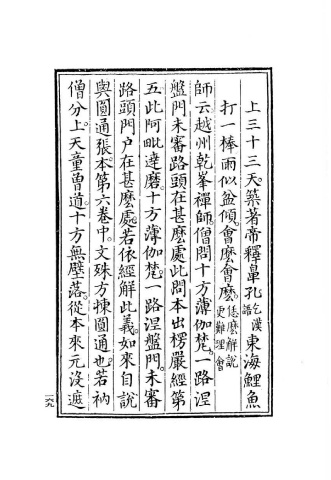 上三十三天。築著帝釋鼻孔。乞漢語東海鯉魚
打一棒雨似盆傾。會麼會麼。恁麼解說更難理會
師云越州乾峯禪師。僧問十方薄伽梵。一路涅
盤門未審路頭在甚麼處此問本出楞嚴經第
五。此阿毗達磨。十方薄伽梵。一路涅盤門。未審
路頭門戶在甚麼處。若依經解此義。如來自說
與圓通張本。第六卷中。文殊方揀圓通也。若衲
僧分上。天童曾道。十方無壁落。從本來元沒遮
一六九